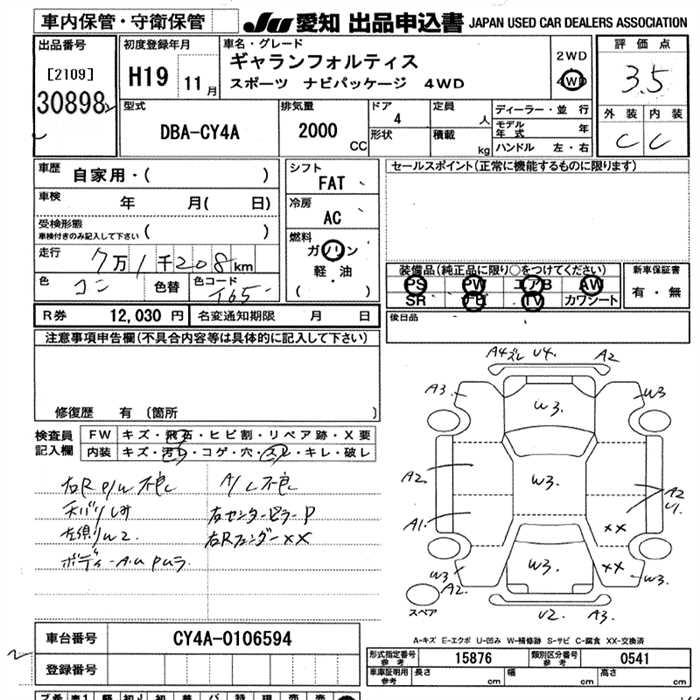 車内保管・守衛保管
JU 愛知 出品申込書 JAPAN USED CAR DEALERS ASSOCIATION
出品番号
[2109]
30898
初度登録年月
H19 11月
車名・グレード
ギャランフォルティス
スポーツ ナビパッケージ 4WD
2WD
4WD
評価点
3.5
外装 内装
C C
型式
DBA-CY4A
排気量
2000
CC
ドア
4
形状
定員
人
積載
kg
ディーラー・並行
モデル年式 年
ハンドル 左・右
車歴 自家用・( )
車検 年 月( 日)
受検形態
車検付きのみ記入して下さい ( )
走行 7万1千208km
色 コン 色替 色コード T65
シフト
FAT
冷房
AC
燃料
ガソリン
軽・油
( )
セールスポイント(正常に機能するものに限ります)
装備品(純正品に限り○をつけてください)
PS PW エアB AW
SR ナビ TV カワシート
新車保証書
有・無
後日品
R券 12,030円 名変通知期限 月 日
注意事項申告欄(不具合内容等は具体的に記入して下さい)
修復歴 有 (箇所 )
検査員記入欄
FW キズ・飛石・ヒビ割・リペア跡・X要
内装 キズ・汚れ・コゲ・穴・スレ・キレ・破レ
右R P/W 不良 A/L不良
右センターピラーP
右Rフェンダー XX
A4 ズレ U4. A2
A3. W3
W3.
A2. W3. A2
U1.
A1. XX
W3 W3. XX W3.
A2.
U2 A3.
スペア
A-キズ E-エクボ U-凹み W-補修跡 S-サビ C-腐食 XX-交換済
車台番号 CY4A-0106594
登録番号
形式指定番号 参考 15876 類別区分番号 参考 0541
車庫証明用 参考 長さ cm 幅 cm 高さ cm